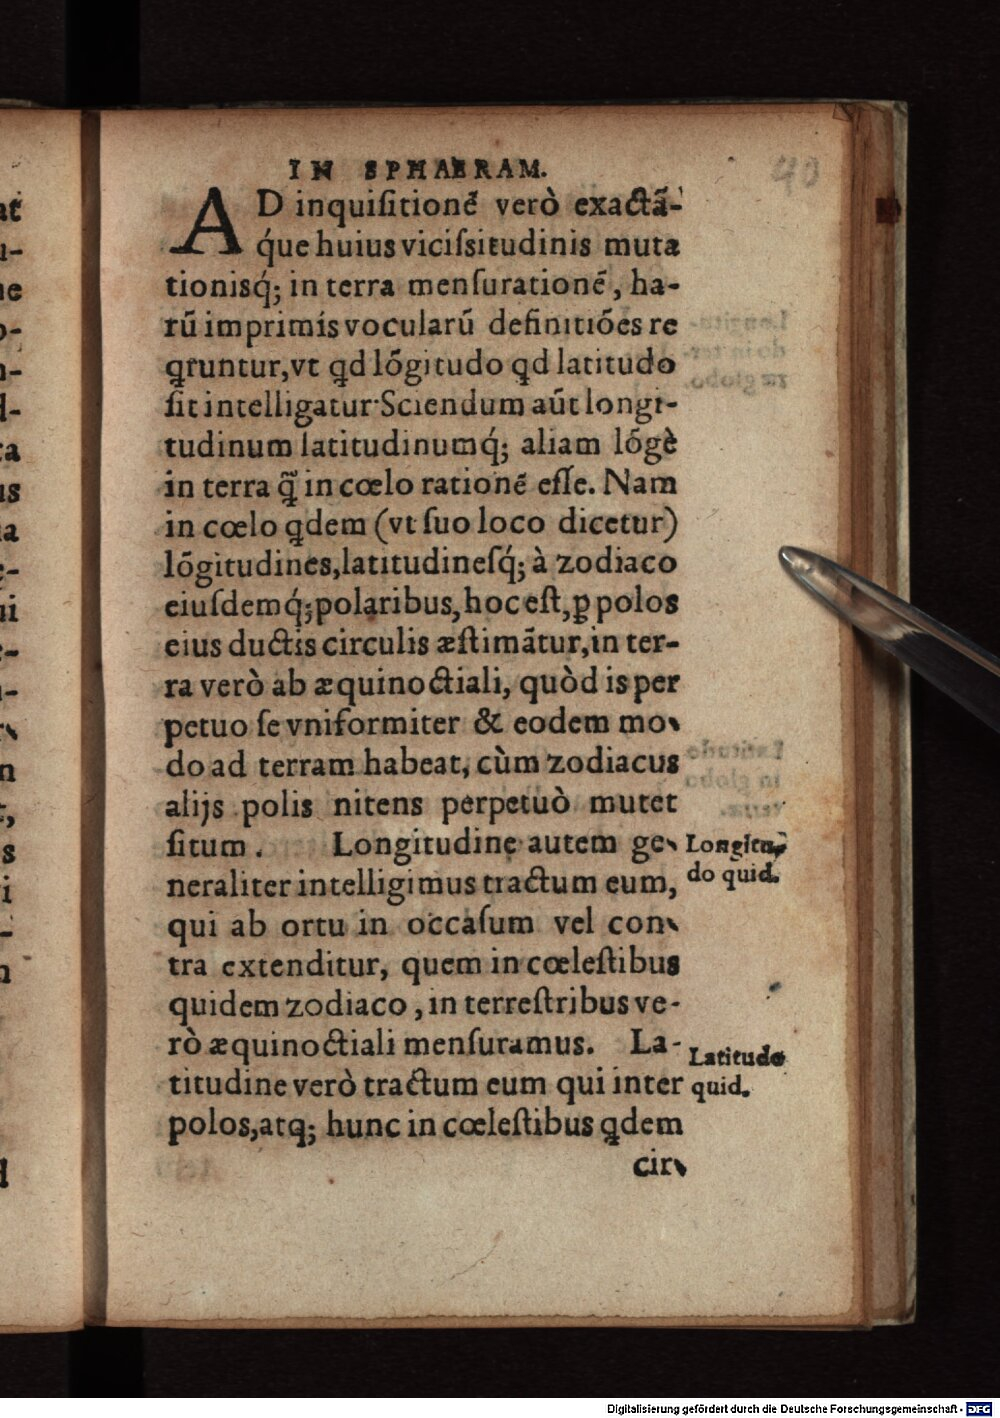 40
IN SPHAERAM.
AD inquiſitionē verò exactā-
q́ue huius viciſsitudinis muta
tionisq́; in terra menſurationē, ha-
rū imprimis vocularū definitiōes re
qruntur, vt qd lōgitudo qd latitudo
ſit intelligatur·Sciendum aūt longi-
tudinum latitudinumq́; aliam lōgè
in terra q̃ in cœlo rationē eſſe. Nam
in cœlo qdem (vt ſuo loco dicetur)
lōgitudines, latitudineſq́; à zodiaco
eiuſdemq́; polaribus, hoc eſt, ꝑ polos
eius ductis circulis æſtimātur, in ter-
ra verò ab æquinoctiali, quòd is per
petuo ſe vniformiter & eodem mo-
do ad terram habeat, cùm zodiacus
alijs polis nitens perpetuò mutet
ſitum. Longitudinę autem ge-
neraliter intelligimus tractum eum,
qui ab ortu in occaſum vel con-
tra extenditur, quem in cœleſtibus
quidem zodiaco, in terreſtribus ve-
rò æquinoctiali menſuramus. La-
titudine verò tractum eum qui inter
polos, atq; hunc in cœleſtibus qdem
cir-
Longitu-
do quid.
Latitudo
quid.
Digitalisierung gefördert durch die Deutsche Forschungsgemeinschaft - DFG